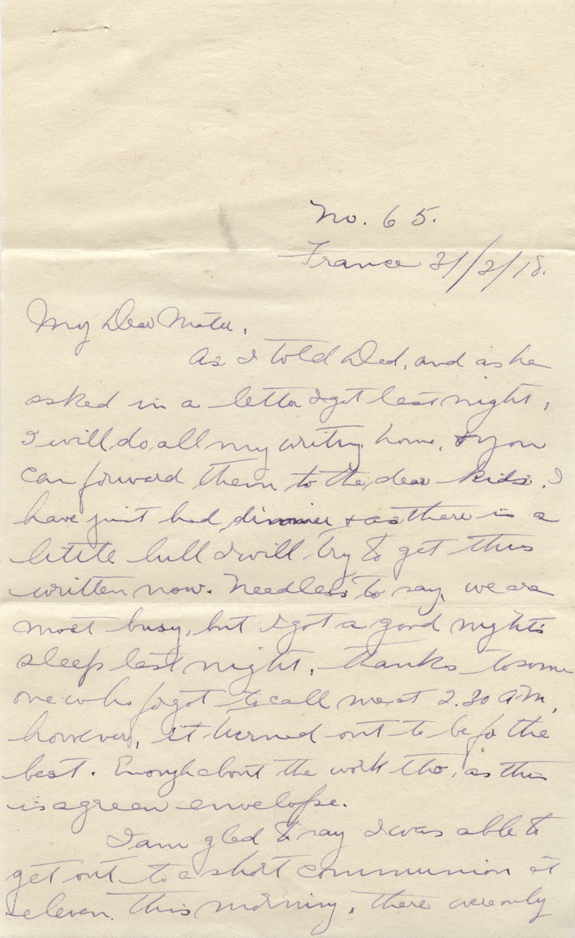 No. 65.
France 31/3/18.
My Dear Mater,
As I told Dad, and as he
asked in a letter I got last night,
I will do all my writing home, & you
can forward them to the dear kids. I
have just had dinner & as there is a
little lull I will try to get this
written now. Needless to say, we are
most busy, but I got a good nights
sleep last night, thanks to some
one who forgot to call me at 2.30 AM,
however, it turned out to be for the
best. Enough about the work tho', as this
is a green envelope.
I am glad to say I was able to
get out to a short communion at
eleven this morning, there were only